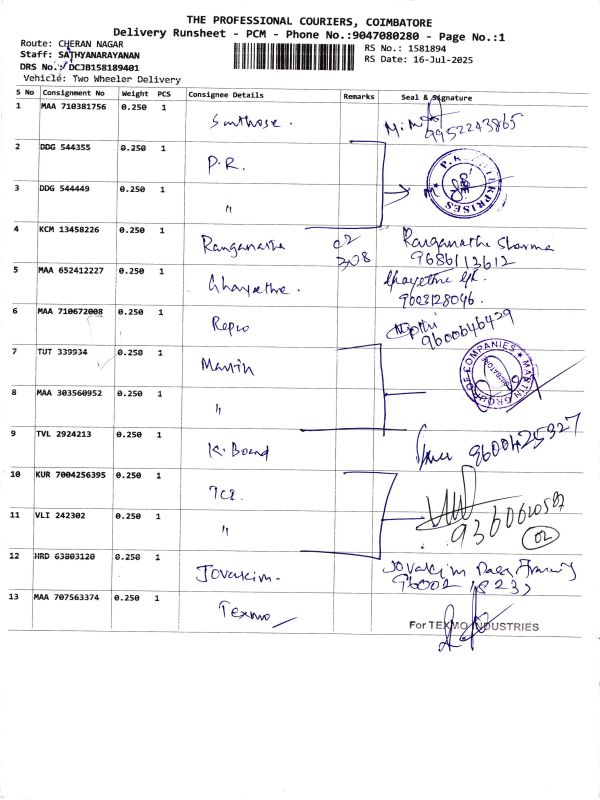 THE PROFESSIONAL COURIERS, COIMBATORE
Delivery Runsheet - PCM - Phone No.:9047080280 - Page No.:1
Route: CHERAN NAGAR
Staff: SATHYANARAYANAN
DRS No.: DCJB158189401
Vehicle: Two Wheeler Delivery
RS No.: 1581894
RS Date: 16-Jul-2025
S No Consignment No Weight PCS Consignee Details Remarks Seal & Signature
1 MAA 710381756 0.250 1 Santhose. 9952243865
2 DDG 544355 0.250 1 P.R.
3 DDG 544449 0.250 1 "
P.R. ENTERPRISES
4 KCM 13458226 0.250 1 Ranganatha C2 308 Ranganatha Sharma
9686113612
5 MAA 652412227 0.250 1 Ghayethre. Ghayethre
9003128046.
6 MAA 710672008 0.250 1 Repco 9600646429
7 TUT 339934 0.250 1 Martin
8 MAA 303560952 0.250 1 "
MARTIN GROUP OF COMPANIES
COIMBATORE
9 TVL 2924213 0.250 1 K. Board 9600425327
10 KUR 7004256395 0.250 1 TCI.
11 VLI 242302 0.250 1 "
02
12 HRD 63803120 0.250 1 Jovakim. Jovakim
13 MAA 707563374 0.250 1 Texmo
For TEXMO INDUSTRIES